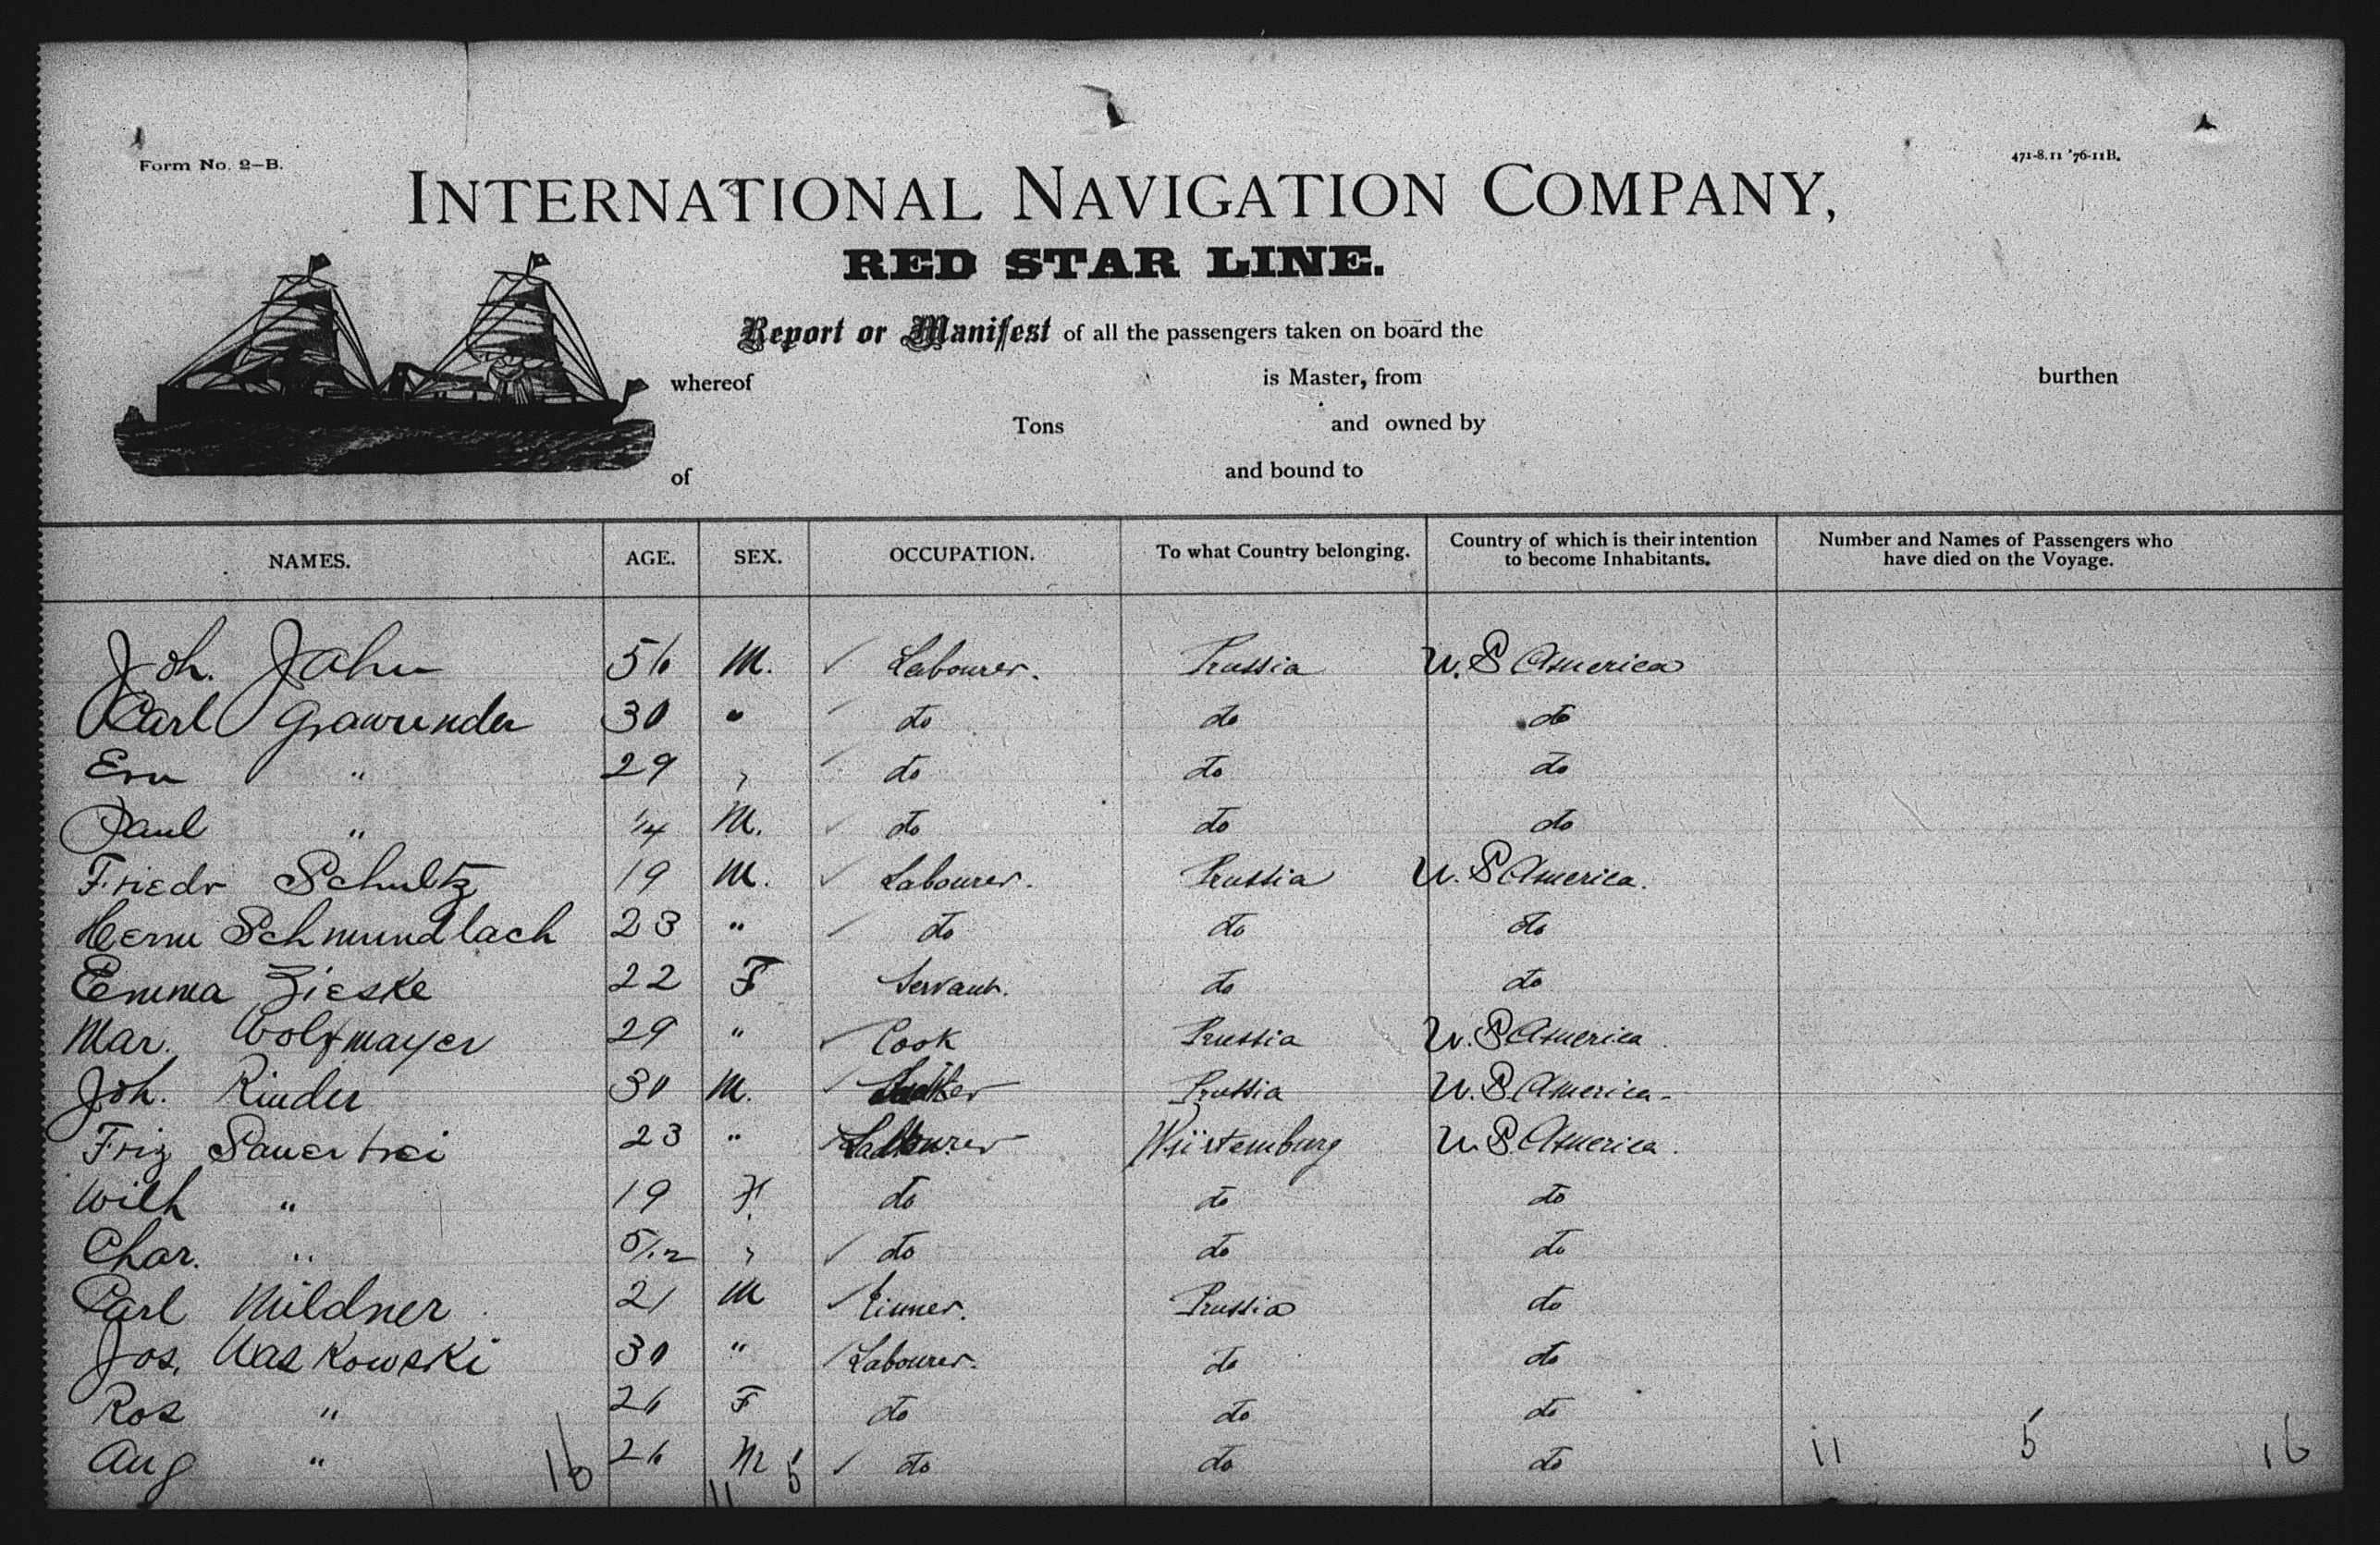 Form No. 2–B.
471-8.11 '76-11B.
INTERNATIONAL NAVIGATION COMPANY,
RED STAR LINE.
Report or Manifest of all the passengers taken on board the
whereof is Master, from burthen
Tons and owned by
of and bound to
NAMES. AGE. SEX. OCCUPATION. To what Country belonging. Country of which is their intention to become Inhabitants. Number and Names of Passengers who have died on the Voyage.
Joh. Jahn 56 M. Labourer. Prussia U.S America
Carl Grawunder 30 " do do do
Ern " 29 " do do do
Paul " 1/4 M. do do do
Friedr Schultz 19 M. Labourer. Prussia U.S America.
Herm Schmundlach 23 " do do do
Emma Zieske 22 F Servant. do do
Mar. Wolfmayer 29 " Cook Prussia U.S America.
Joh. Rinder 30 M. Prussia U.S. America.
Friz Sauerbrei 23 " Labourer Würtemburg U.S. America.
Wilh " 19 F. do do do
Char. " 5/12 " do do do
Carl Mildner 21 M Prussia do
Jos. Waskowski 30 " Labourer. do do
Ros " 26 F do do do
Aug " 26 M do do do
16 11 5 11 5 16